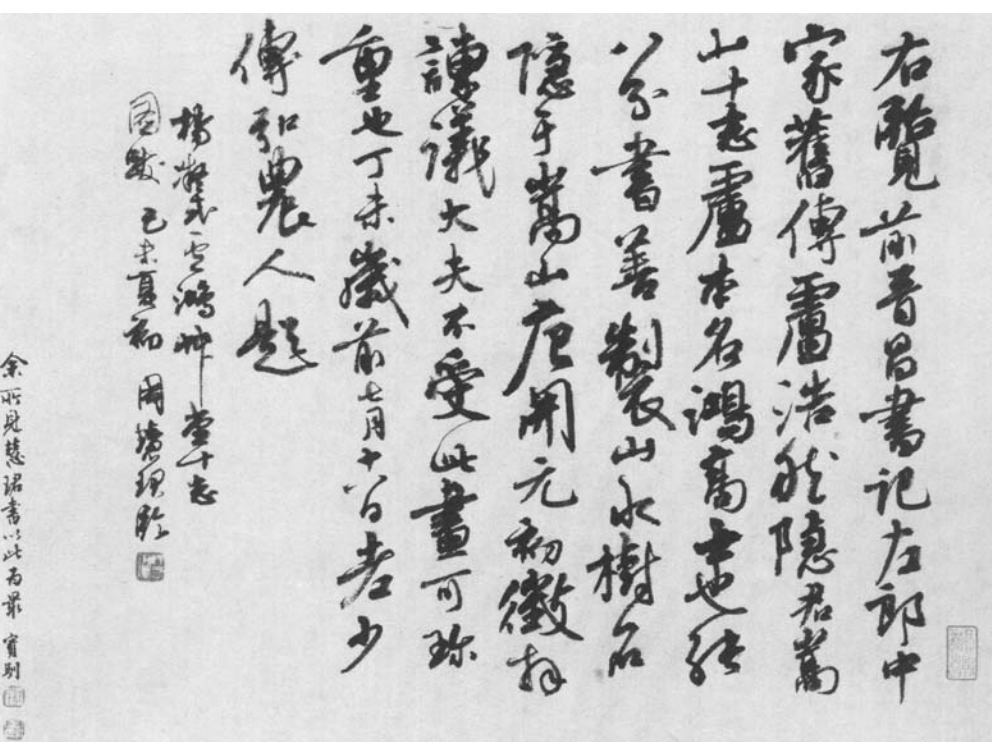 右覽前晉昌書記左郎中
家舊傳盧浩然隱君嵩
山十志盧本名鴻高士也能
八分書善製山水樹石
隱于嵩山唐開元初徵拜
諫議大夫不受此畫可珎
重也丁未歲前七月十八日老少
傅弘農人題
楊凝式雲鴻艸堂十志
圖跋 己未夏初 周慧珺臨
余所見慧珺書以此為最 寶馴